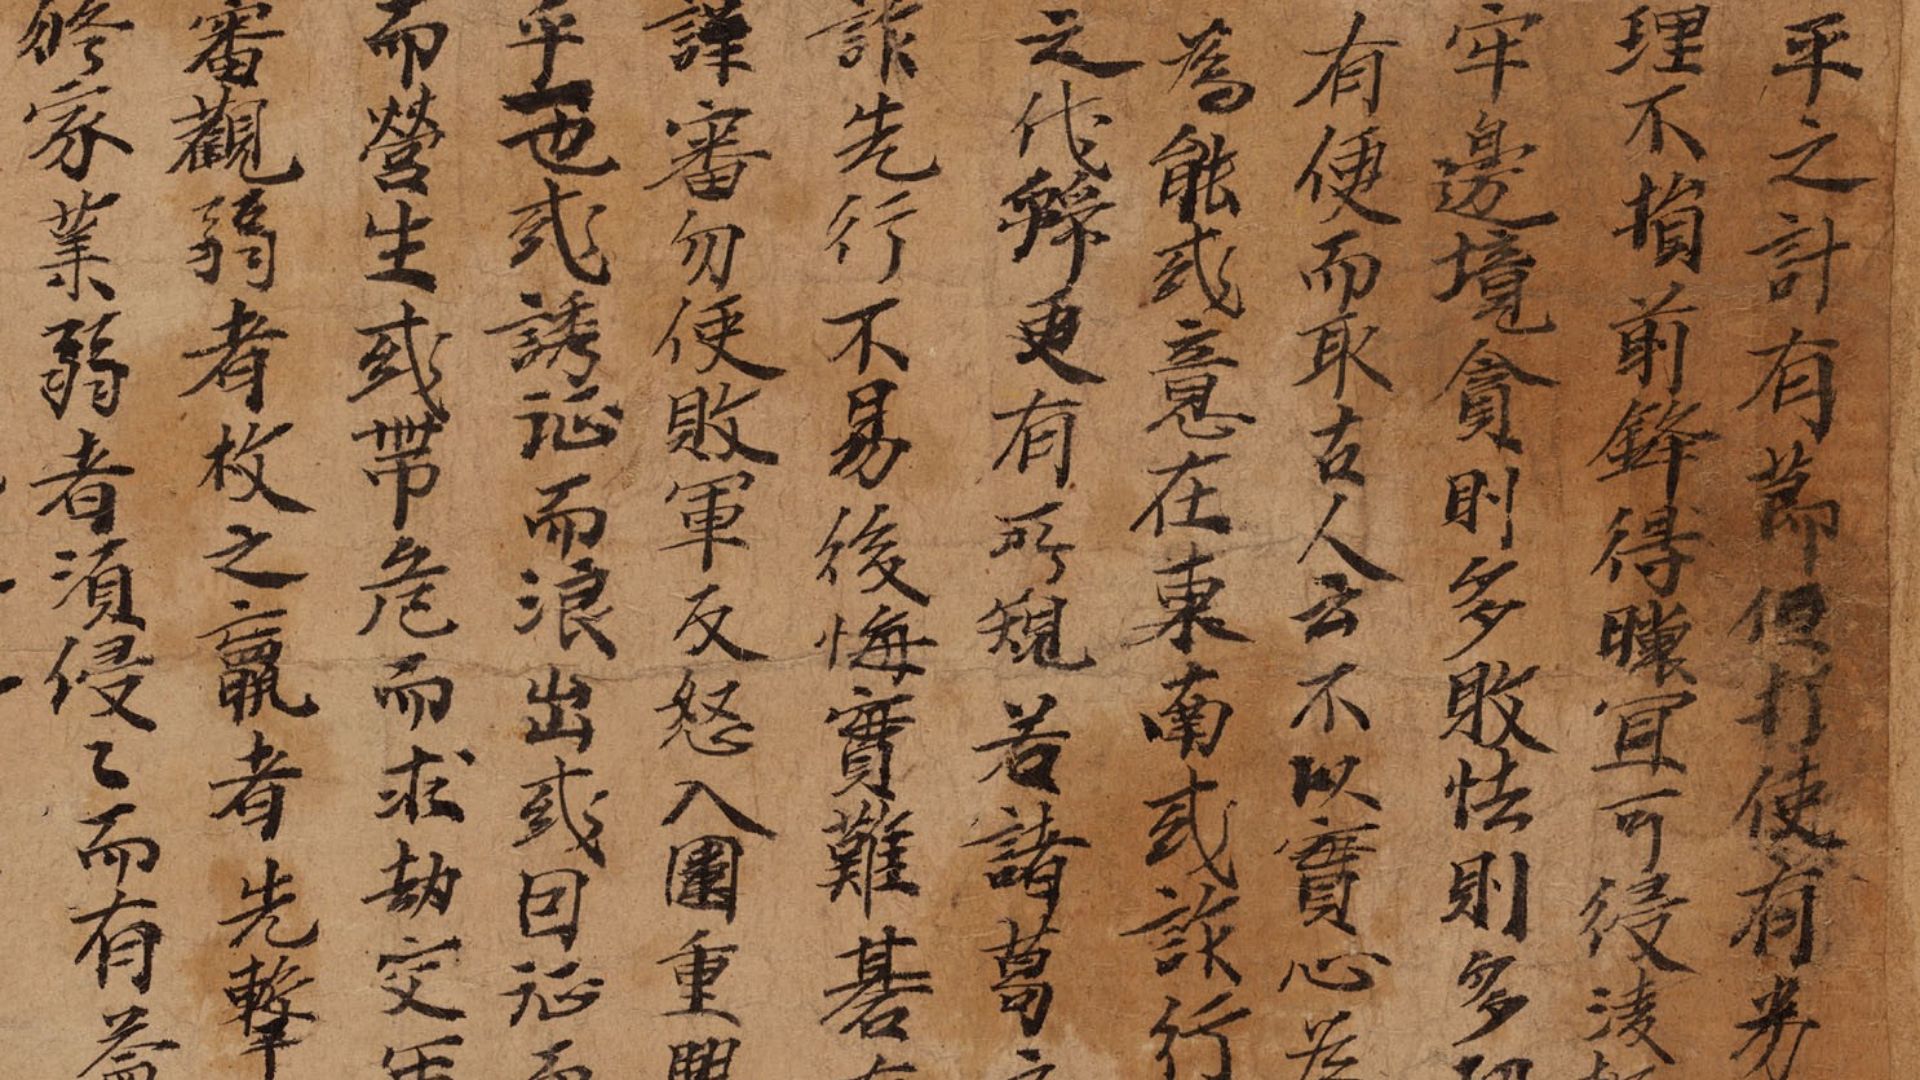 平之計有節但打使有劣
理不損前鋒得暖宜可侵淩
牢邊境貪則多敗怯則多
有便而取古人云不以實心為
為能或意在東南或詐行
之代辤更有所窺若諸葛之
詐先行不易後悔實難碁有
謹審勿使敗軍反怒入圍重開
乎一也或誘征而浪出或因征而
而營生或帶危而求劫交軍
審觀弱者枚之羸者先擊
修家業弱者須侵〻而有益